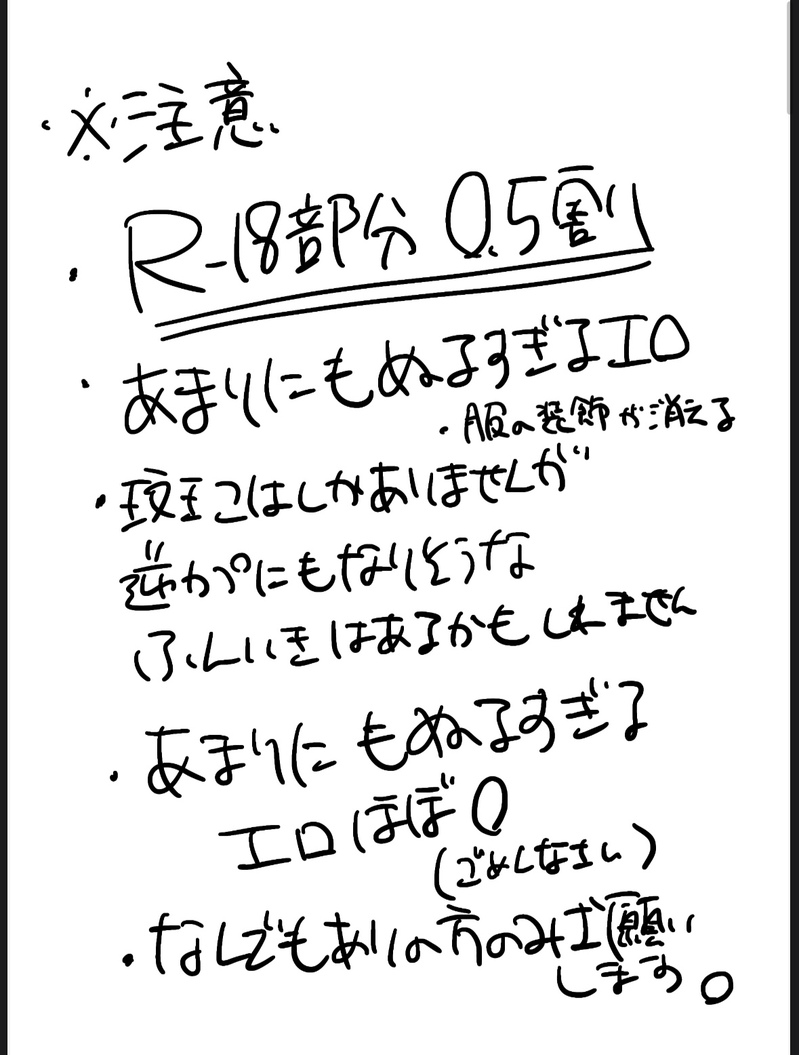 ※注意
・R-18部分 0.5割り
・あまりにもぬるすぎるエロ
・服の装飾が消える
・玟王こはしかありませんが
逆カプにもなりそうな
ふんいきはあるかもしれません
・あまりにもぬるすぎる
エロほぼ0
(ごめんなさい)
・なんでもありの方のみお願い
します。